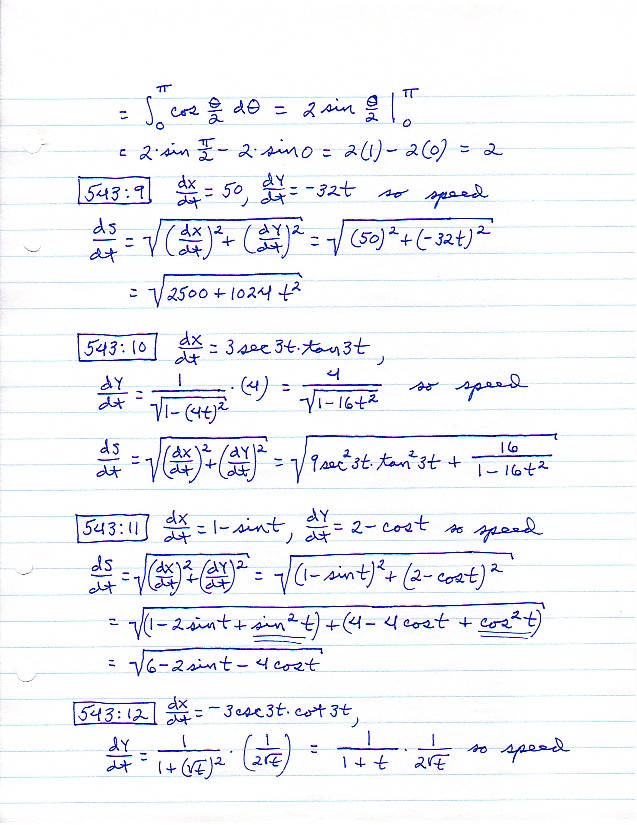 = ∫₀^π cos θ/2 dθ = 2 sin θ/2 |₀^π
= 2·sin π/2 - 2·sin 0 = 2(1) - 2(0) = 2
543:9 dx/dt = 50, dy/dt = -32t so speed
ds/dt = √((dx/dt)² + (dy/dt)²) = √((50)² + (-32t)²)
= √(2500 + 1024 t²)
543:10 dx/dt = 3 sec 3t · tan 3t,
dy/dt = 1/√(1-(4t)²) · (4) = 4/√(1-16t²) so speed
ds/dt = √((dx/dt)² + (dy/dt)²) = √(9 sec² 3t · tan² 3t + 16/(1-16t²))
543:11 dx/dt = 1 - sin t, dy/dt = 2 - cos t so speed
ds/dt = √((dx/dt)² + (dy/dt)²) = √((1 - sin t)² + (2 - cos t)²)
= √((1 - 2 sin t + sin² t) + (4 - 4 cos t + cos² t))
= √(6 - 2 sin t - 4 cos t)
543:12 dx/dt = -3 csc 3t · cot 3t,
dy/dt = 1/(1+(√t)²) · (1/(2√t)) = 1/(1+t) · 1/(2√t) so speed